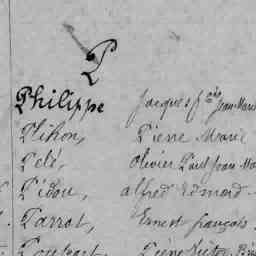 P
Philippe Jacques f^çois Jean Marie
Plihon, Pierre Marie
Pelé, Olivier Paul Jean Ma
Pidou, alfred Edmond
Parrot, Ernest françois